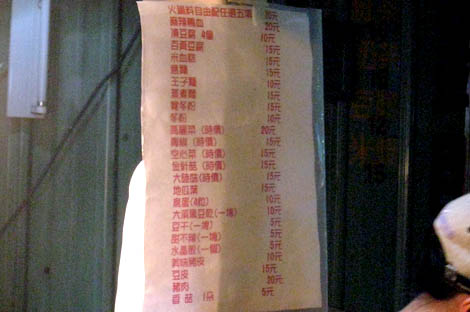 火鍋料自由配任選五項 30元
麻辣鴨血 20元
凍豆腐 4個 10元
百頁豆腐 15元
米血糕 15元
意麵 15元
王子麵 10元
蒸煮麵 15元
寬冬粉 15元
冬粉 10元
高麗菜(時價) 20元
青椒(時價) 15元
空心菜(時價) 15元
金針菇(時價) 15元
大陸菇(時價) 15元
地瓜葉 15元
鳥蛋(4粒) 10元
大溪黑豆乾(一塊) 10元
豆干(一塊) 5元
甜不辣(一塊) 5元
水晶餃(一個) 5元
美味豬皮 10元
豆皮 15元
豬肉 20元
香菇 1朵 5元